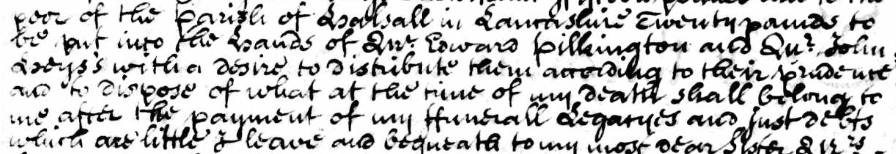 poor of the Parish of Halsall in Lancashire Twenty pounds to
be put into the hands of Mr. Edward Pillington and Mr. John
Heyss with a desire to distribute them according to their prudence
and to dispose of what at the time of my death shall belong to
me after the payment of my ffunerall Legacyes and just debts
which are little I leave and bequeath to my most dear Sister Mrs